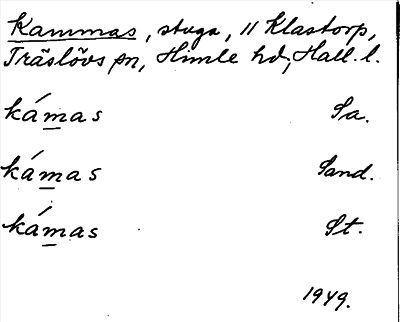 Kammas, stuga, 11 Klastorp,
Träslövs sn, Himle hd, Hall. l.
ká̱mas Sa.
ká̱mas Sand.
ká̱mas St.
1949.